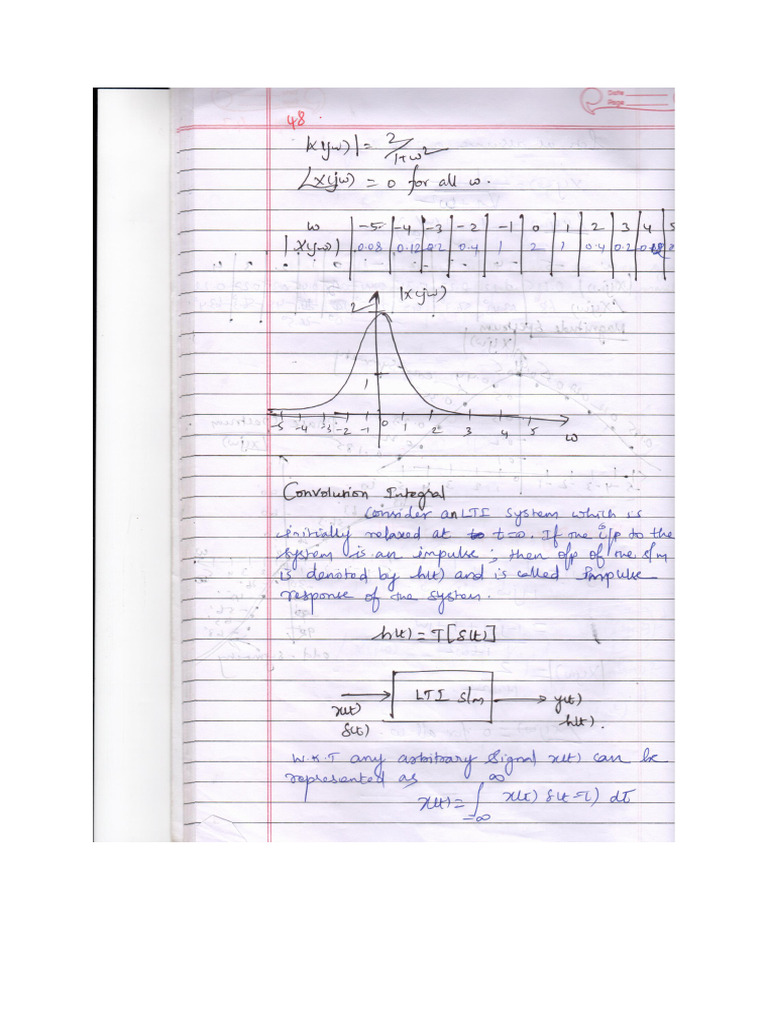 Date
Page
48.
|X(jω)| = 2/1+ω²
∠X(jω) = 0 for all ω.
ω | -5 | -4 | -3 | -2 | -1 | 0 | 1 | 2 | 3 | 4 | 5
|X(jω)| | 0.08 | 0.12 | 0.2 | 0.4 | 1 | 2 | 1 | 0.4 | 0.2
|X(jω)
2
1
-5 -4 -3 -2 -1 0 1 2 3 4 5
ω
Convolution Integral
Consider an LTI system which is
initially relaxed at t=0. If the i/p to the
system is an impulse; then o/p of the s/m
is denoted by h(t) and is called Impulse
response of the system.
h(t) = T[δ(t)]
LTI S/m
x(t) y(t)
δ(t) h(t).
W.K.T any arbitrary signal x(t) can be
represented as
x(t) = ∫_{-∞}^{∞} x(τ) δ(t-τ) dτ